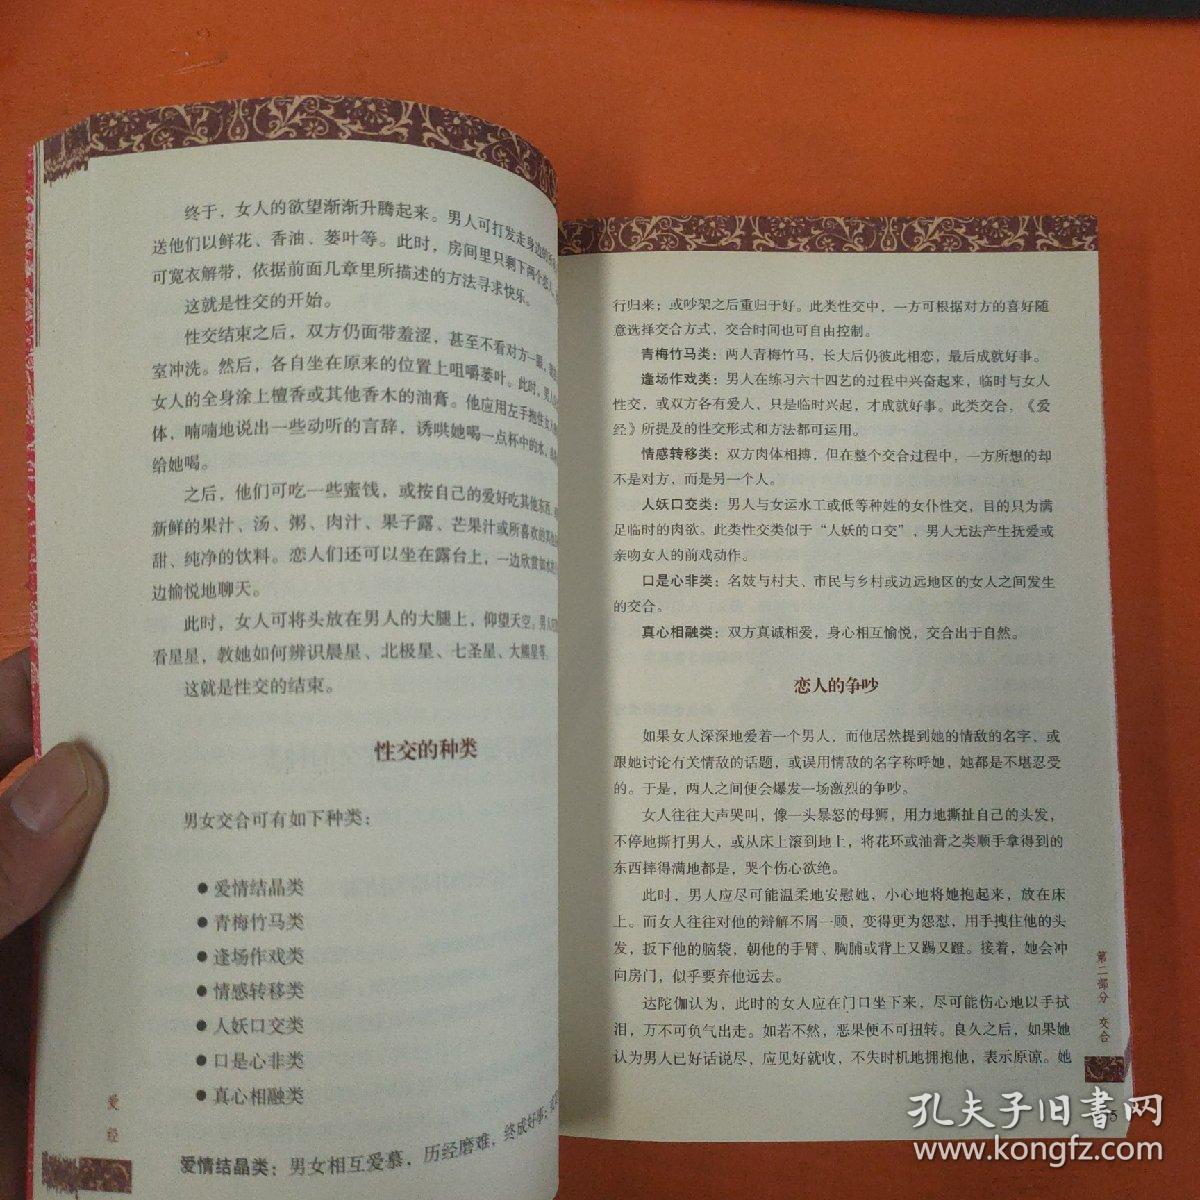 终于，女人的欲望渐渐升腾起来。男人可打发走身边的
送他们以鲜花、香油、蒌叶等。此时，房间里只剩下两个恋人，
可宽衣解带，依据前面几章里所描述的方法寻求快乐。
这就是性交的开始。
性交结束之后，双方仍面带羞涩，甚至不看对方一眼，
室冲洗。然后，各自坐在原来的位置上咀嚼蒌叶。此时，男人
女人的全身涂上檀香或其他香木的油膏。他应用左手抱住女人
体，喃喃地说出一些动听的言辞，诱哄她喝一点杯中的水，
给她喝。
之后，他们可吃一些蜜饯，或按自己的爱好吃其他东西，
新鲜的果汁、汤、粥、肉汁、果子露、芒果汁或所喜欢的其他
甜、纯净的饮料。恋人们还可以坐在露台上，一边欣赏
边愉悦地聊天。
此时，女人可将头放在男人的大腿上，仰望天空。男人
看星星，教她如何辨识晨星、北极星、七圣星、大熊星等。
这就是性交的结束。
性交的种类
男女交合可有如下种类：
●爱情结晶类
●青梅竹马类
●逢场作戏类
●情感转移类
●人妖口交类
●口是心非类
●真心相融类
爱情结晶类：男女相互爱慕，历经磨难，终成好事；
爱经
行归来；或吵架之后重归于好。此类性交中，一方可根据对方的喜好随
意选择交合方式，交合时间也可自由控制。
青梅竹马类：两人青梅竹马，长大后仍彼此相恋，最后成就好事。
逢场作戏类：男人在练习六十四艺的过程中兴奋起来，临时与女人
性交，或双方各有爱人，只是临时兴起，才成就好事。此类交合，《爱
经》所提及的性交形式和方法都可运用。
情感转移类：双方肉体相搏，但在整个交合过程中，一方所想的却
不是对方，而是另一个人。
人妖口交类：男人与女运水工或低等种姓的女仆性交，目的只为满
足临时的肉欲。此类性交类似于“人妖的口交”，男人无法产生抚爱或
亲吻女人的前戏动作。
口是心非类：名妓与村夫、市民与乡村或边远地区的女人之间发生
的交合。
真心相融类：双方真诚相爱，身心相互愉悦，交合出于自然。
恋人的争吵
如果女人深深地爱着一个男人，而他居然提到她的情敌的名字，或
跟她讨论有关情敌的话题，或误用情敌的名字称呼她，她都是不堪忍受
的。于是，两人之间便会爆发一场激烈的争吵。
女人往往大声哭叫，像一头暴怒的母狮，用力地撕扯自己的头发，
不停地撕打男人，或从床上滚到地上，将花环或油膏之类顺手拿得到的
东西摔得满地都是，哭个伤心欲绝。
此时，男人应尽可能温柔地安慰她，小心地将她抱起来，放在床
上。而女人往往对他的辩解不屑一顾，变得更为怨怼，用手拽住他的头
发，扳下他的脑袋，朝他的手臂、胸脯或背上又踢又蹬。接着，她会冲
向房门，似乎要弃他远去。
达陀伽认为，此时的女人应在门口坐下来，尽可能伤心地以手拭
泪，万不可负气出走。如若不然，恶果便不可扭转。良久之后，如果她
认为男人已好话说尽，应见好就收，不失时机地拥抱他，表示原谅。她
第二部分 交合
孔夫子旧書网
www.kongfz.com